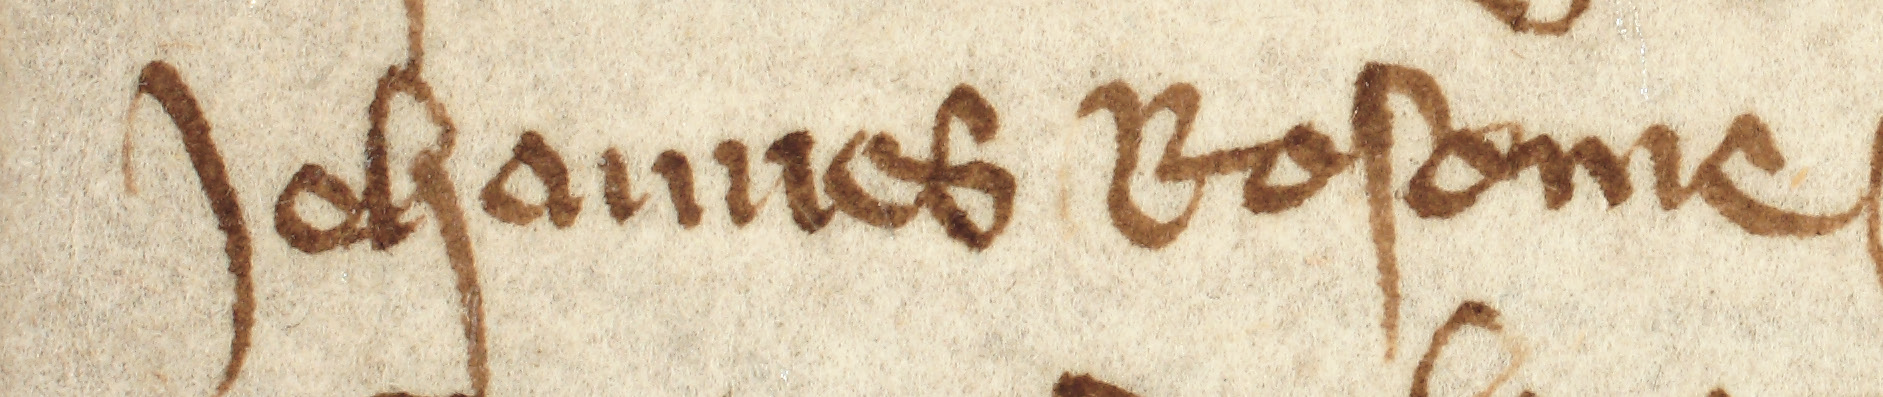 Johannes Bosome